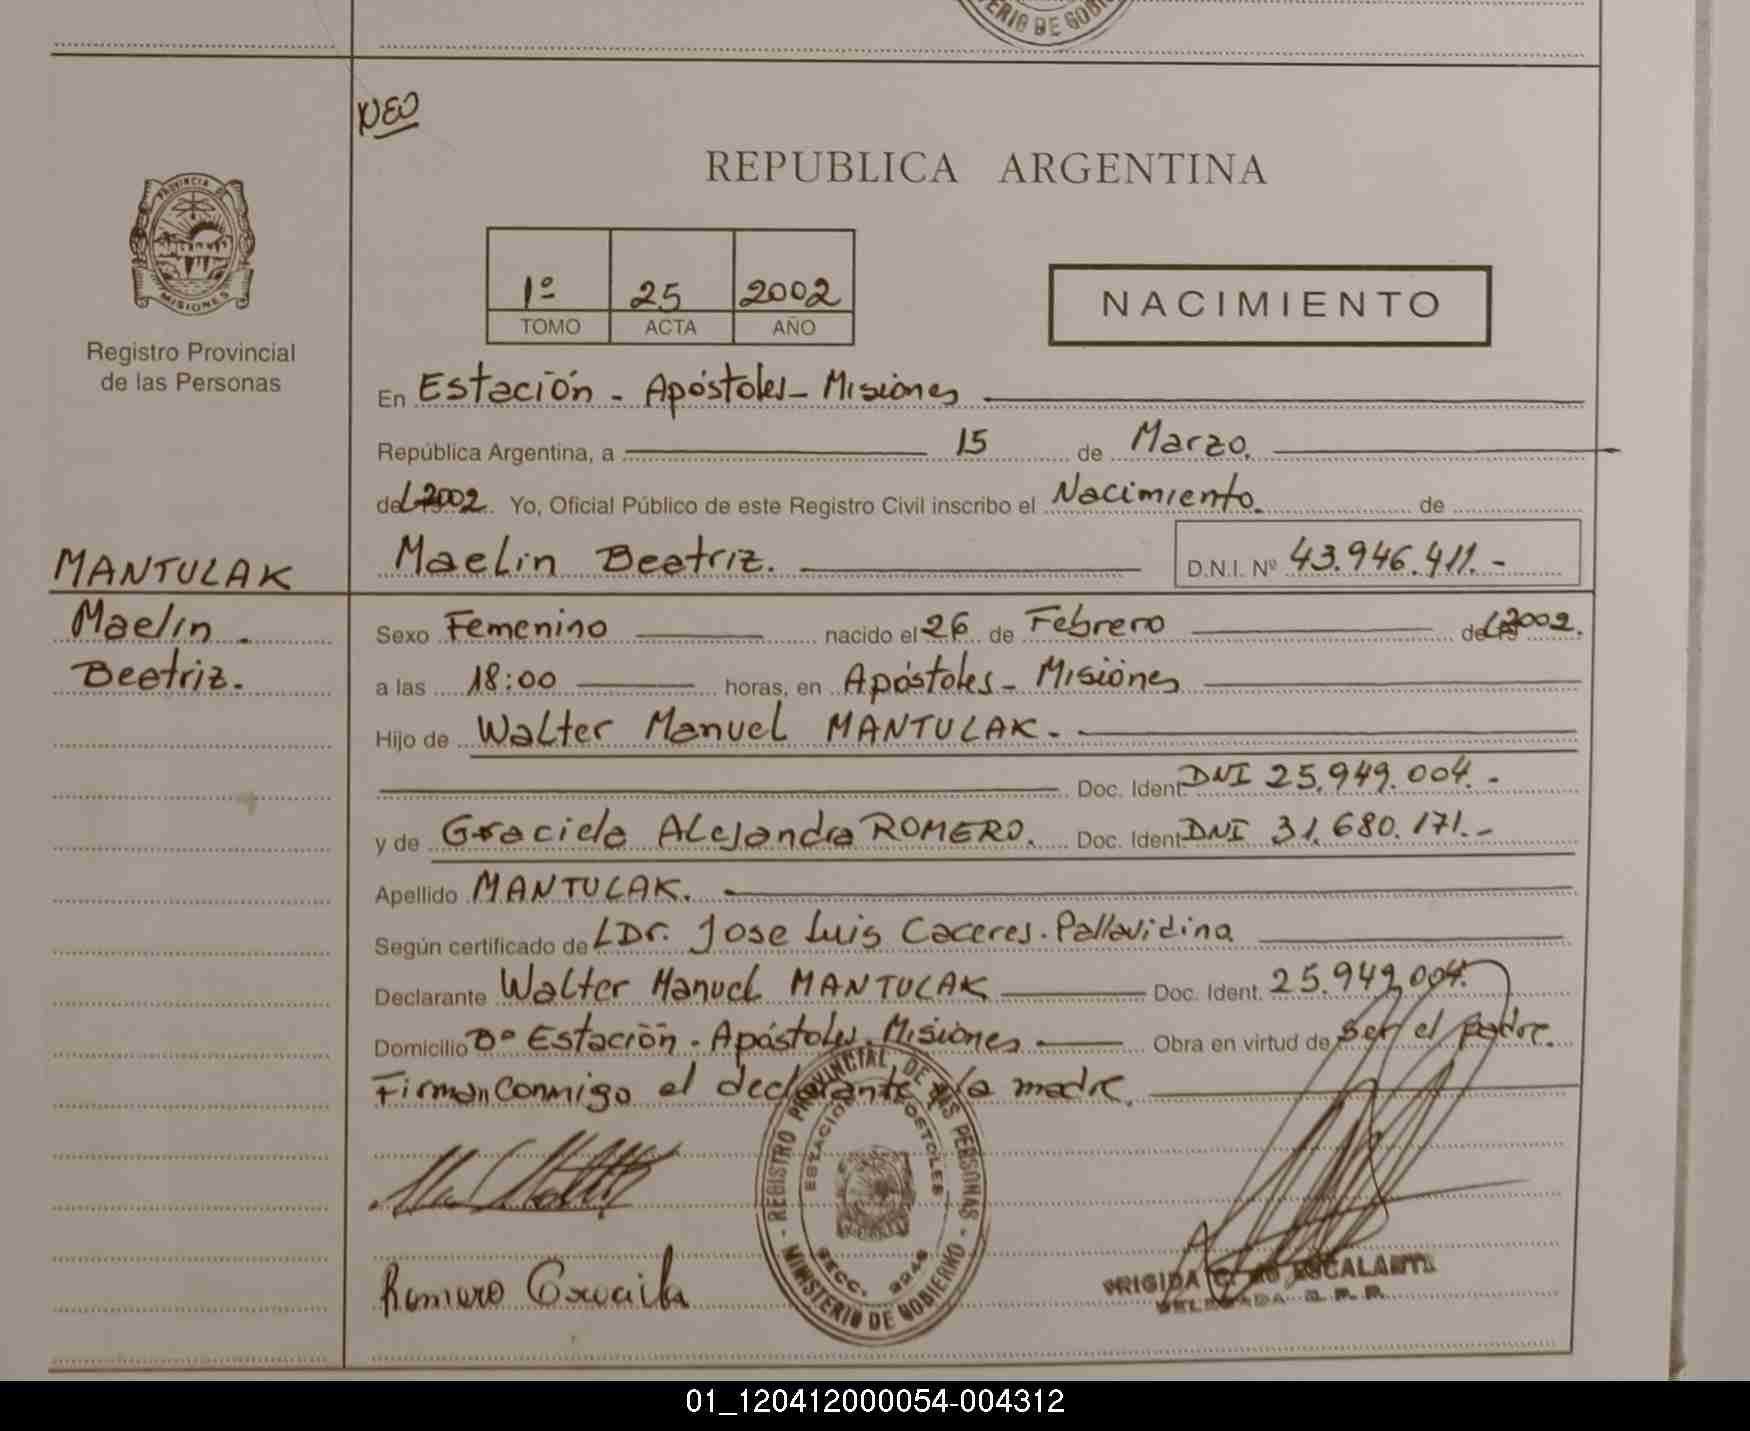 ERIO DE GOBI
NEO
REPUBLICA ARGENTINA
PROVINCIA DE
MISIONES
1º 25 2002
TOMO ACTA AÑO
NACIMIENTO
Registro Provincial
de las Personas
En Estación - Apóstoles - Misiones
República Argentina, a 15 de Marzo,
del 2002. Yo, Oficial Público de este Registro Civil inscribo el Nacimiento. de
MANTULAK
Maelin Beatriz. D.N.I. Nº 43.946.411.-
Maelin.
Beatriz.
Sexo Femenino nacido el 26 de Febrero del 2002.
a las 18:00 horas, en Apóstoles - Misiones
Hijo de Walter Manuel MANTULAK.
Doc. Ident. DNI 25.949.004.-
y de Graciela Alejandra ROMERO. Doc. Ident. DNI 31.680.171.-
Apellido MANTULAK.
Según certificado de L Dr. Jose Luis Caceres. Pallavidina
Declarante Walter Manuel MANTULAK Doc. Ident. 25.949.004.
Domicilio Bº Estación - Apóstoles. Misiones Obra en virtud de ser el padre.
Firman conmigo el declarante y la madre.
REGISTRO PROVINCIAL DE LAS PERSONAS
ESTACION APOSTOLES
SECC.
MINISTERIO DE GOBIERNO
Romero Graciela
BRIGIDA ESCALANTE
DELEGADA R. P. P.
01_120412000054-004312